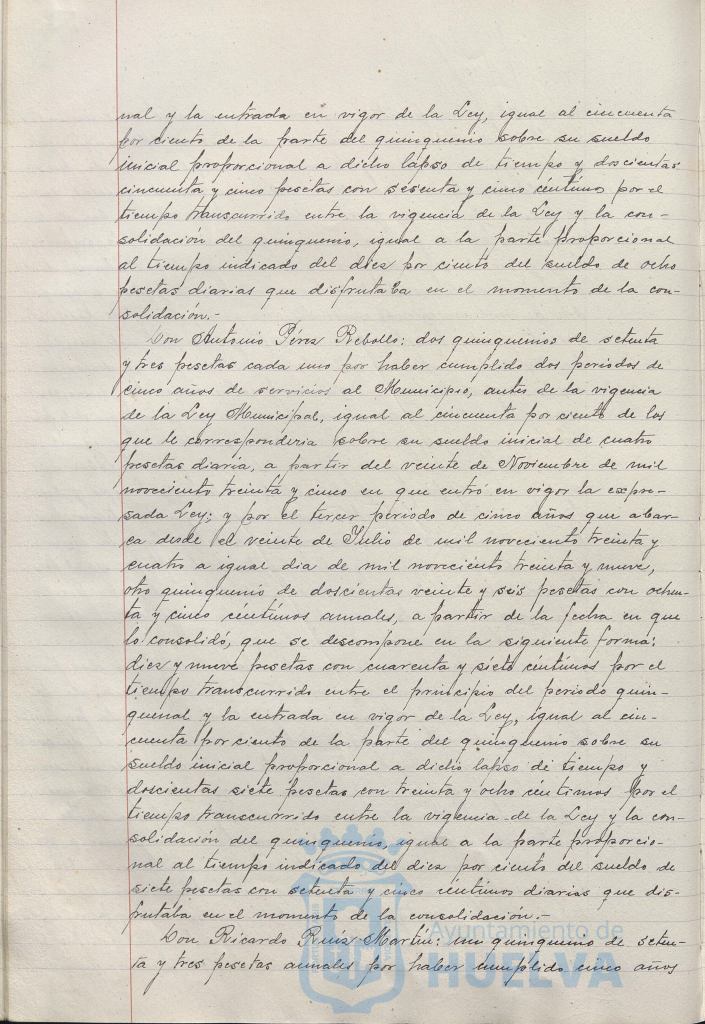 nal y la entrada en vigor de la Ley, igual al cincuenta
por ciento de la parte del quinquenio sobre su sueldo
inicial proporcional a dicho lapso de tiempo y doscientas
cincuenta y cinco pesetas con sesenta y cinco céntimos por el
tiempo transcurrido entre la vigencia de la Ley y la con-
solidación del quinquenio, igual a la parte proporcional
al tiempo indicado del diez por ciento del sueldo de ocho
pesetas diarias que disfrutaba en el momento de la con-
solidación.-
Don Antonio Pérez Rebollo: dos quinquenios de setenta
y tres pesetas cada uno por haber cumplido dos periodos de
cinco años de servicios al Municipio, antes de la vigencia
de la Ley Municipal, igual al cincuenta por ciento de los
que le correspondería sobre su sueldo inicial de cuatro
pesetas diaria, a partir del veinte de Noviembre de mil
noveciento treinta y cinco en que entró en vigor la expre-
sada Ley; y por el tercer periodo de cinco años que abar-
ca desde el veinte de Julio de mil noveciento treinta y
cuatro a igual dia de mil noveciento treinta y nueve,
otro quinquenio de doscientas veinte y seis pesetas con ochen-
ta y cinco céntimos anuales, a partir de la fecha en que
lo consolidó, que se descompone en la siguiente forma:
diez y nueve pesetas con cuarenta y siete céntimos por el
tiempo transcurrido entre el principio del periodo quin-
quenal y la entrada en vigor de la Ley, igual al cin-
cuenta por ciento de la parte del quinquenio sobre su
sueldo inicial proporcional a dicho lapso de tiempo y
doscientas siete pesetas con treinta y ocho céntimos por el
tiempo transcurrido entre la vigencia de la Ley y la con-
solidación del quinquenio, igual a la parte proporcio-
nal al tiempo indicado del diez por ciento del sueldo de
siete pesetas con setenta y cinco céntimos diarias que dis-
frutába en el momento de la consolidación.-
Don Ricardo Ruiz Martín: un quinquenio de seten-
ta y tres pesetas anuales por haber cumplido cinco años
Ayuntamiento de
HUELVA